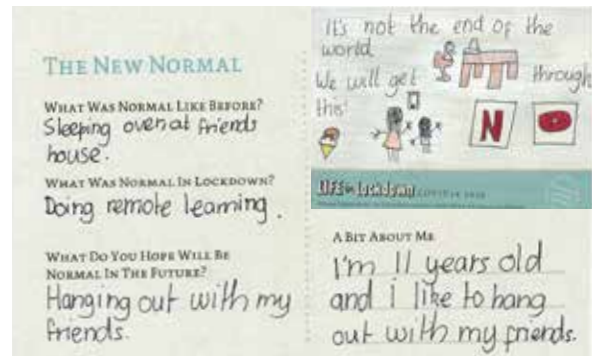 THE NEW NORMAL
WHAT WAS NORMAL LIKE BEFORE?
Sleeping over at friends
house.
WHAT WAS NORMAL IN LOCKDOWN?
Doing remote learning.
WHAT DO YOU HOPE WILL BE
NORMAL IN THE FUTURE?
Hanging out with my
friends.
It's not the end of the
world
We will get through
this!
N O
LIFE in Lockdown COVID-19 2020
A BIT ABOUT ME
I'm 11 years old
and i like to hang
out with my friends.